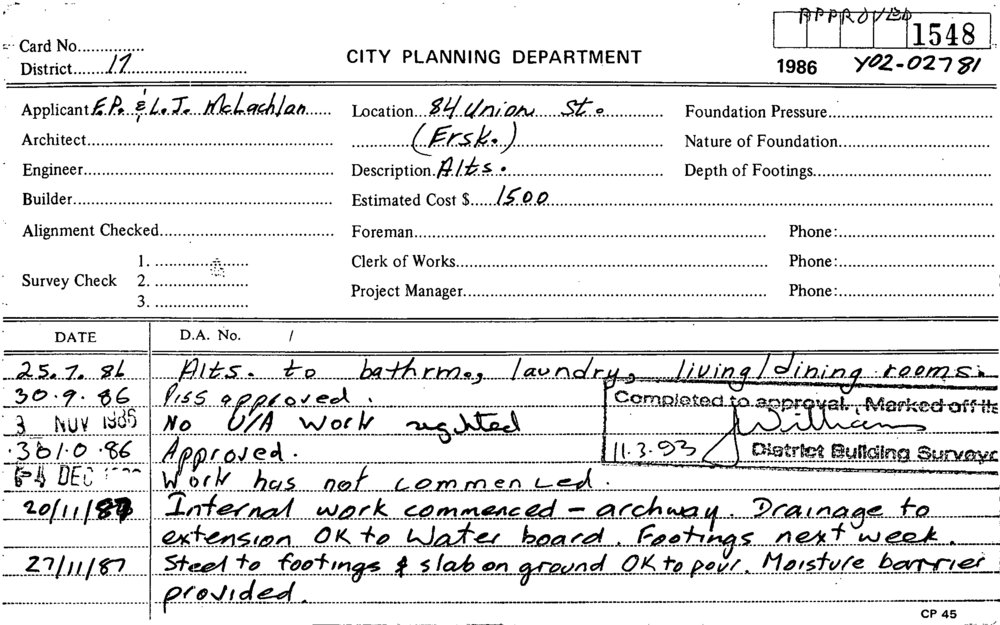 APPROVED
1548
Card No.
District 17
CITY PLANNING DEPARTMENT
1986 Y02-02781
Applicant F.P. & L.J. McLachlan Location 84 Union St. Foundation Pressure
Architect (Ersk.) Nature of Foundation
Engineer Description Alts. Depth of Footings
Builder Estimated Cost $ 1500
Alignment Checked Foreman Phone:
1. Clerk of Works Phone:
Survey Check 2.
3. Project Manager Phone:
DATE D.A. No. /
25.7.86 Alts. to bathrm., laundry, living/dining rooms.
30.9.86 Piss approved.
3 NOV 1986 No U/A work sighted
30/.0.86 Approved.
Completed to approval, Marked off its
Williams
11.3.93 District Building Surveyo
DEC Work has not commenced.
20/11/87 Internal work commenced – archway. Drainage to
extension OK to Water board. Footings next week.
27/11/87 Steel to footings & slab on ground OK to pour. Moisture barrier
provided.
CP 45